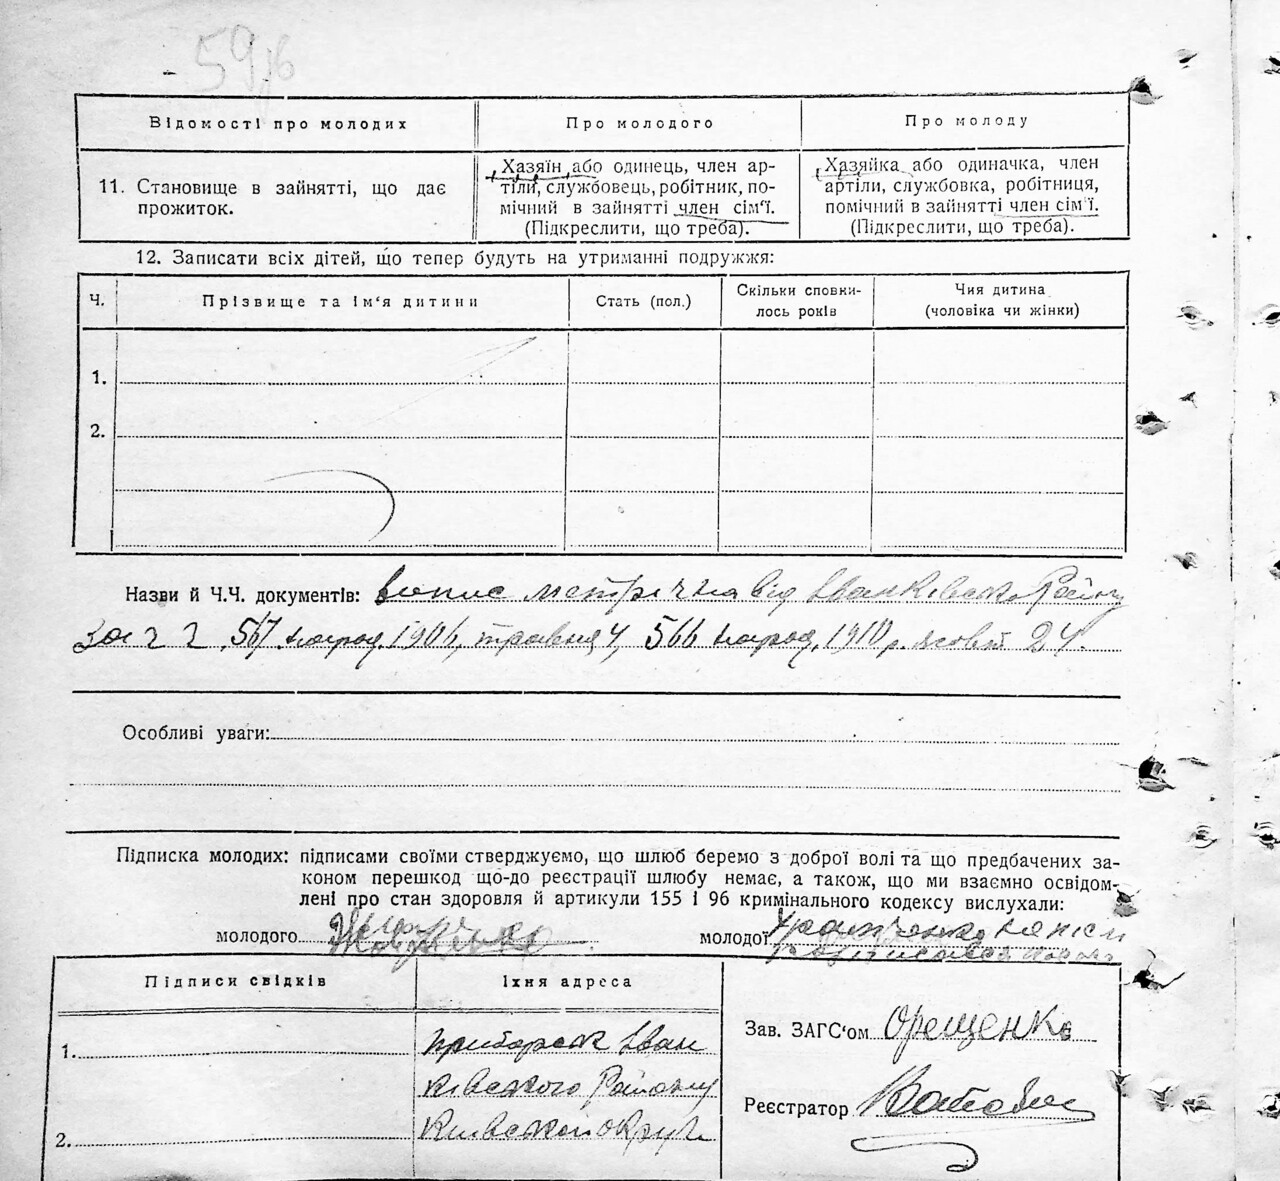 59
Відомості про молодих
Про молодого
Про молоду
11. Становище в зайнятті, що дає
прожиток.
Хазяїн або одинець, член ар-
тіли, службовець, робітник, по-
мічний в зайнятті член сім'ї.
(Підкреслити, що треба).
Хазяйка або одиначка, член
артіли, службовка, робітниця,
помічний в зайнятті член сім'ї.
(Підкреслити, що треба).
12. Записати всіх дітей, що тепер будуть на утриманні подружжя:
Ч.
Прізвище та ім'я дитини
Стать (пол.)
Скільки сповни-
лось років
Чия дитина
(чоловіка чи жінки)
1.
2.
Назви й Ч.Ч. документів: випис метрична від Іванківськ. Району
567 народ. 1906, травня 4, 566 народ. 1910 р. жовт 24.
Особливі уваги:
Підписка молодих: підписами своїми стверджуємо, що шлюб беремо з доброї волі та що предбачених за-
коном перешкод що-до реєстрації шлюбу немає, а також, що ми взаємно освідом-
лені про стан здоровля й артикули 155 і 96 кримінального кодексу вислухали:
молодого
молодої
Підписи свідків
Їхня адреса
1.
приборськ Іван
ківського Району
2.
Київської округи
Зав. ЗАГС'ом Орещенко
Реєстратор